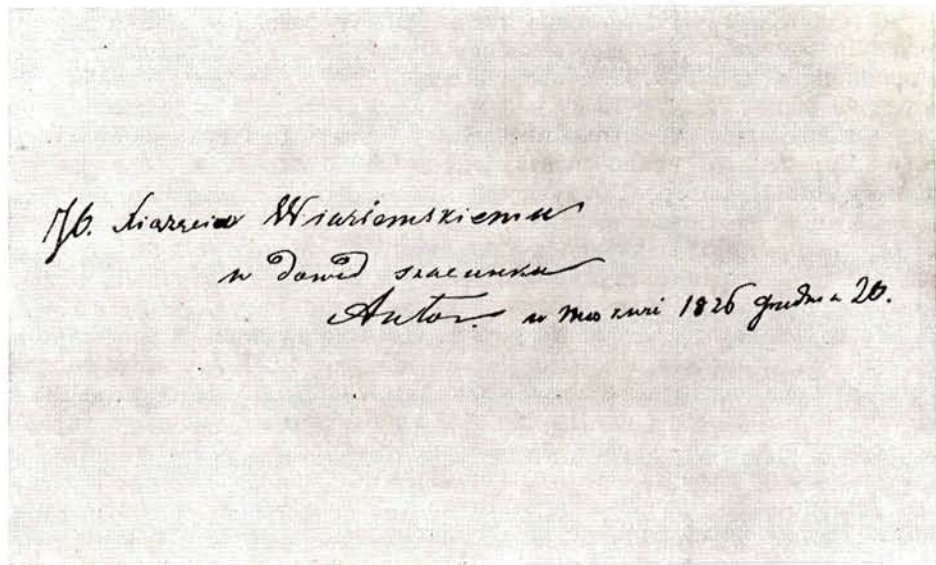 JO. Xiązęciu Wiaziemskiemu
w dowód szacunku
Autor. w Moskwi 1826 grudnia 20.